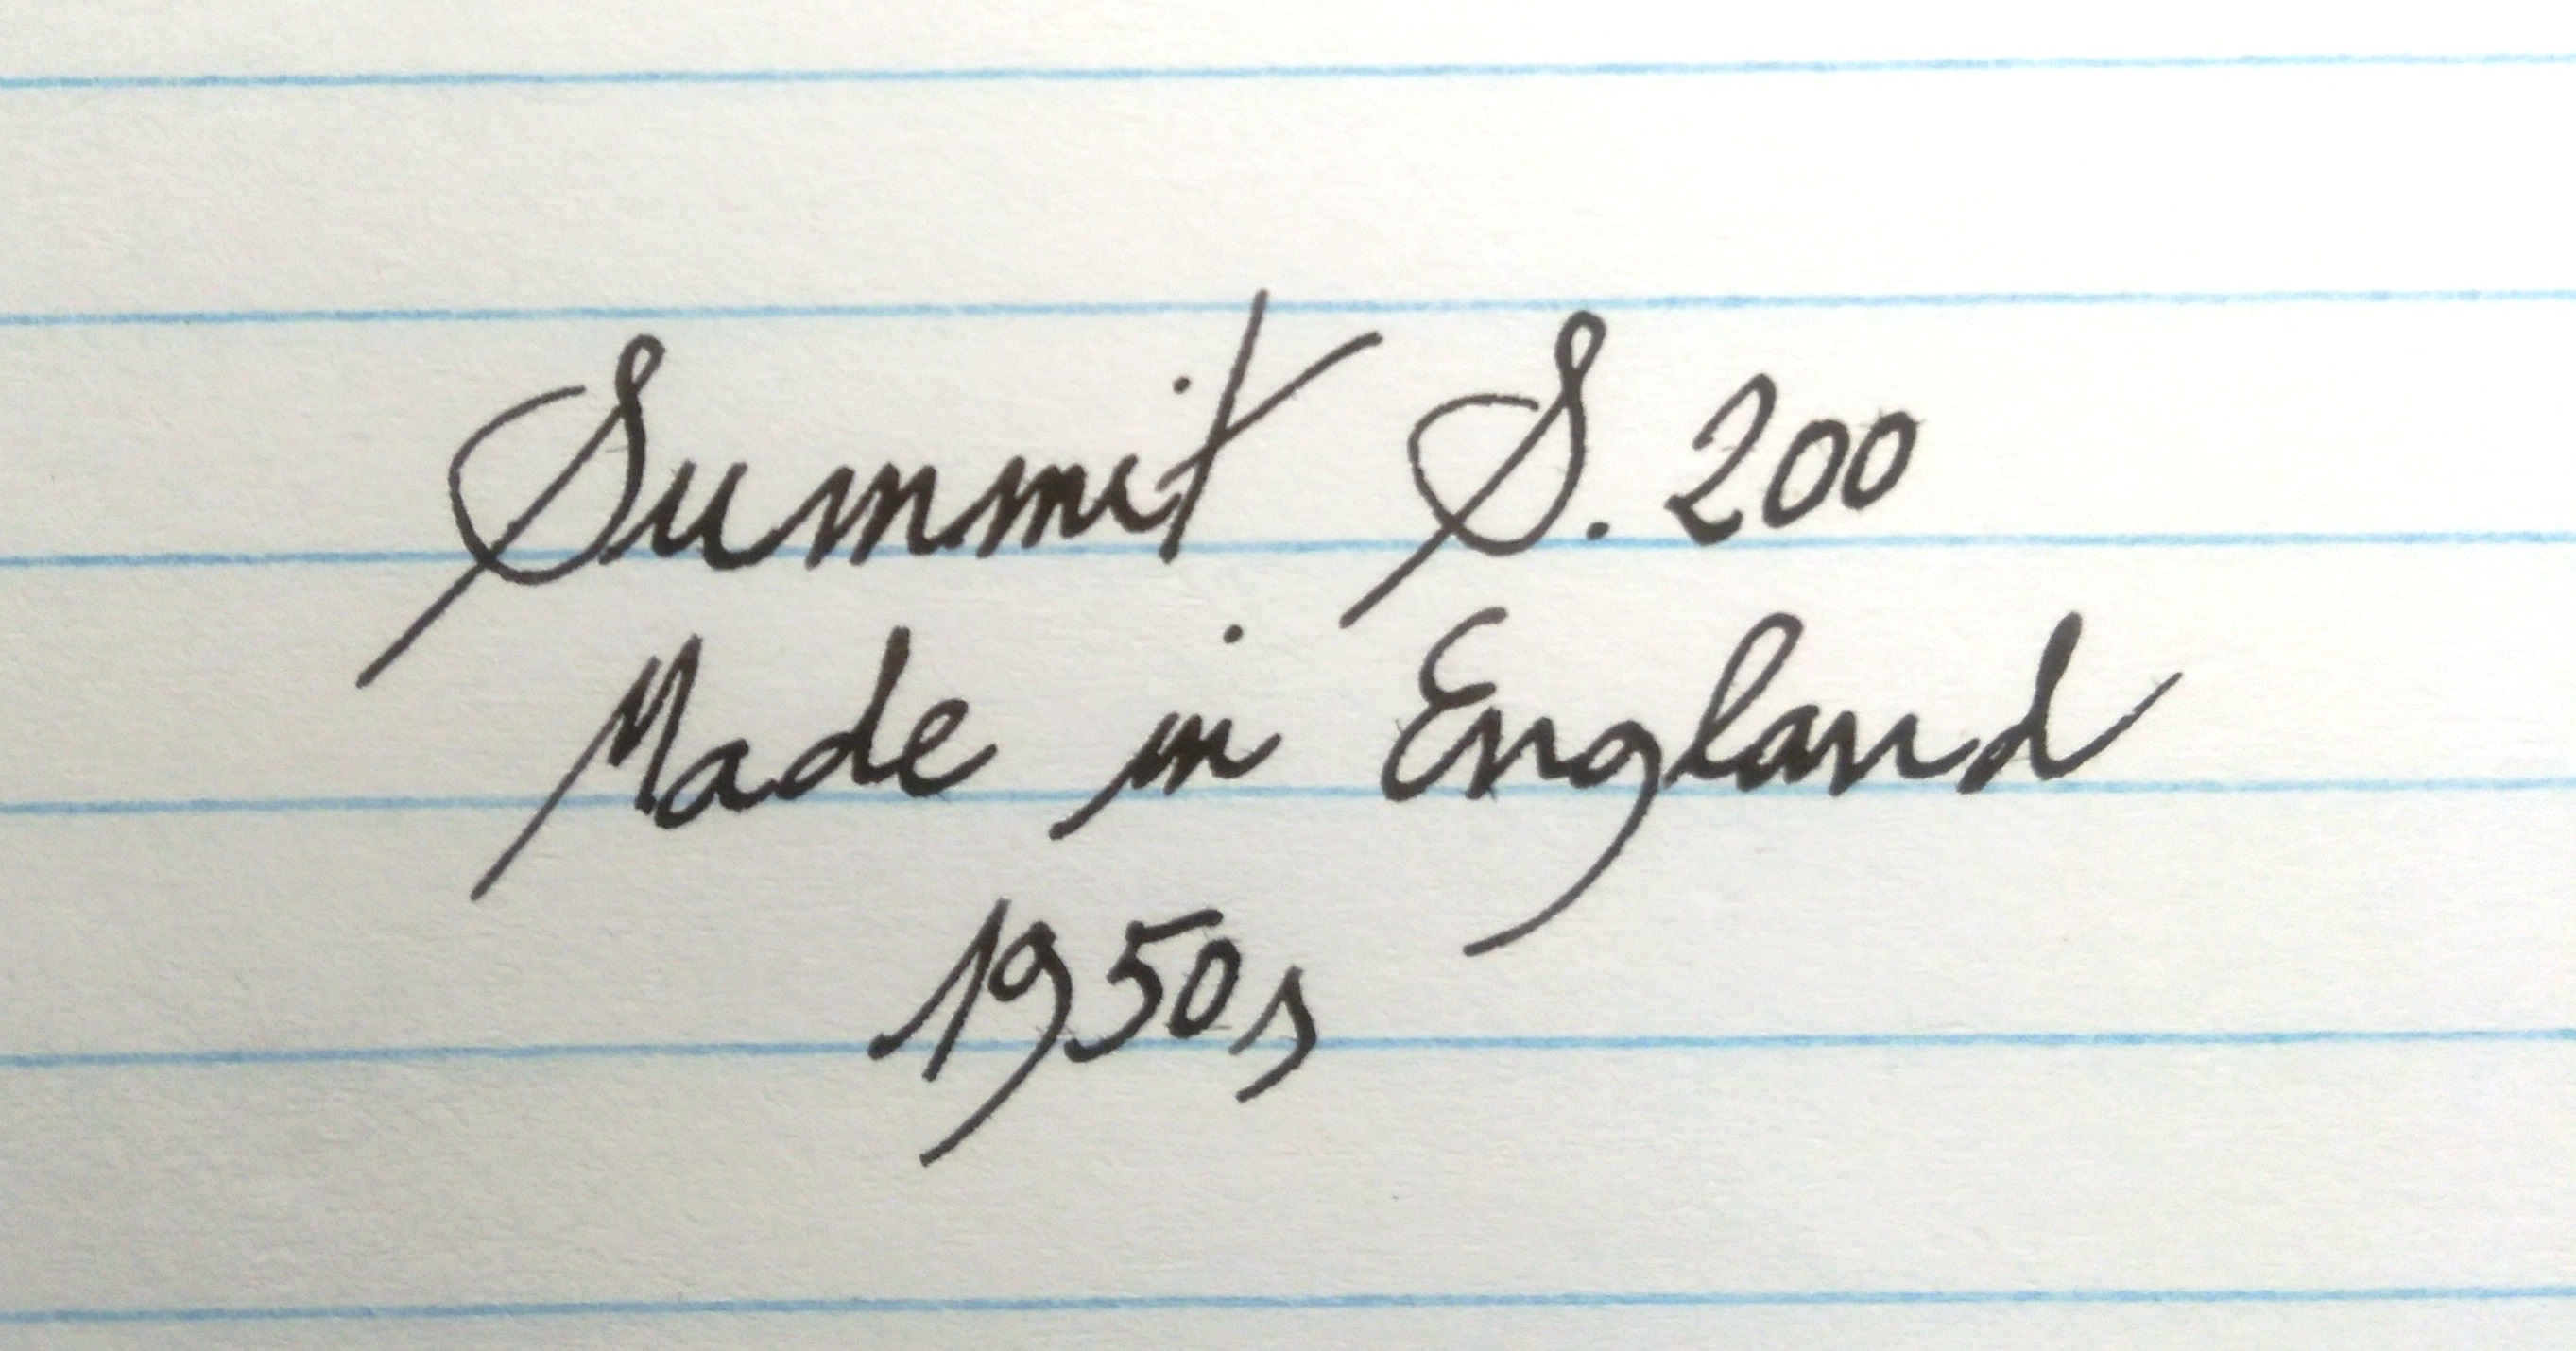 Summit S. 200
Made in England
1950s